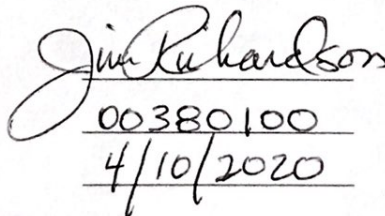 Jim Richardson
00380100
4/10/2020